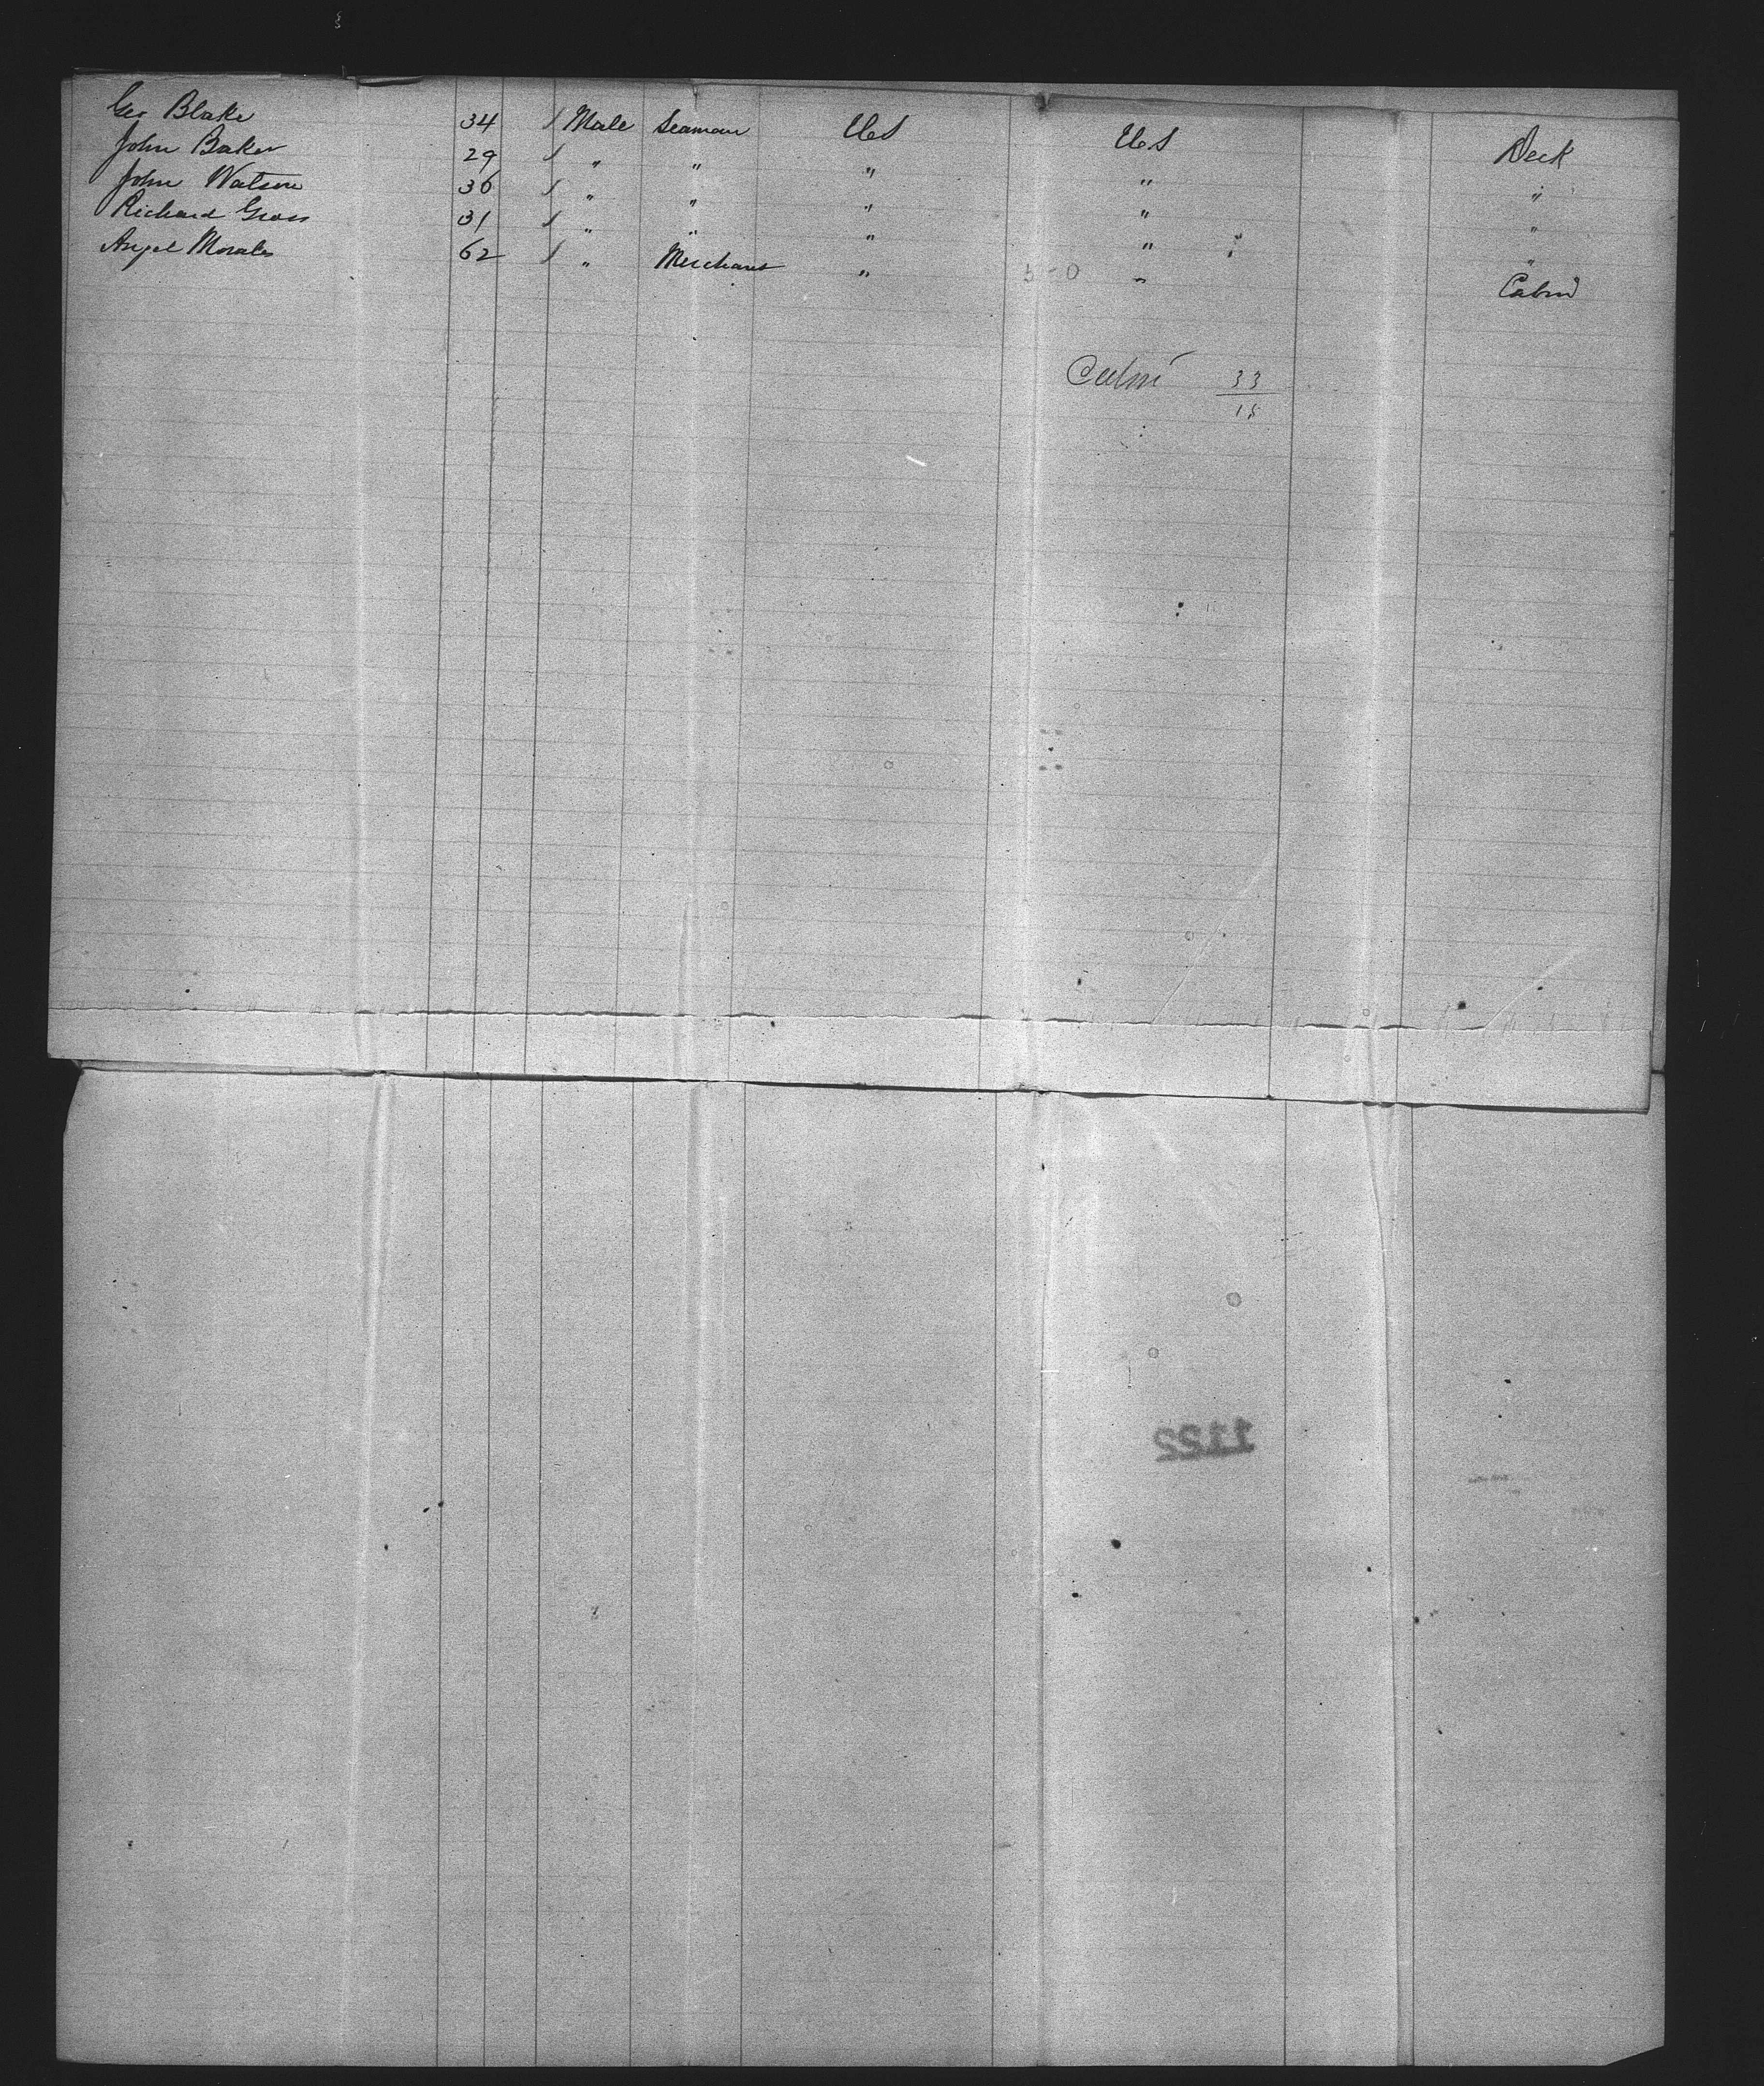 Geo Blake 34 / Male Seaman U.S U.S Deck
John Baker 29 / " " " " "
John Watson 36 / " " " " "
Richard Gross 31 / " " " " "
Angel Morales 62 / " Merchant " " Cabin
Cabin 33
18
1122